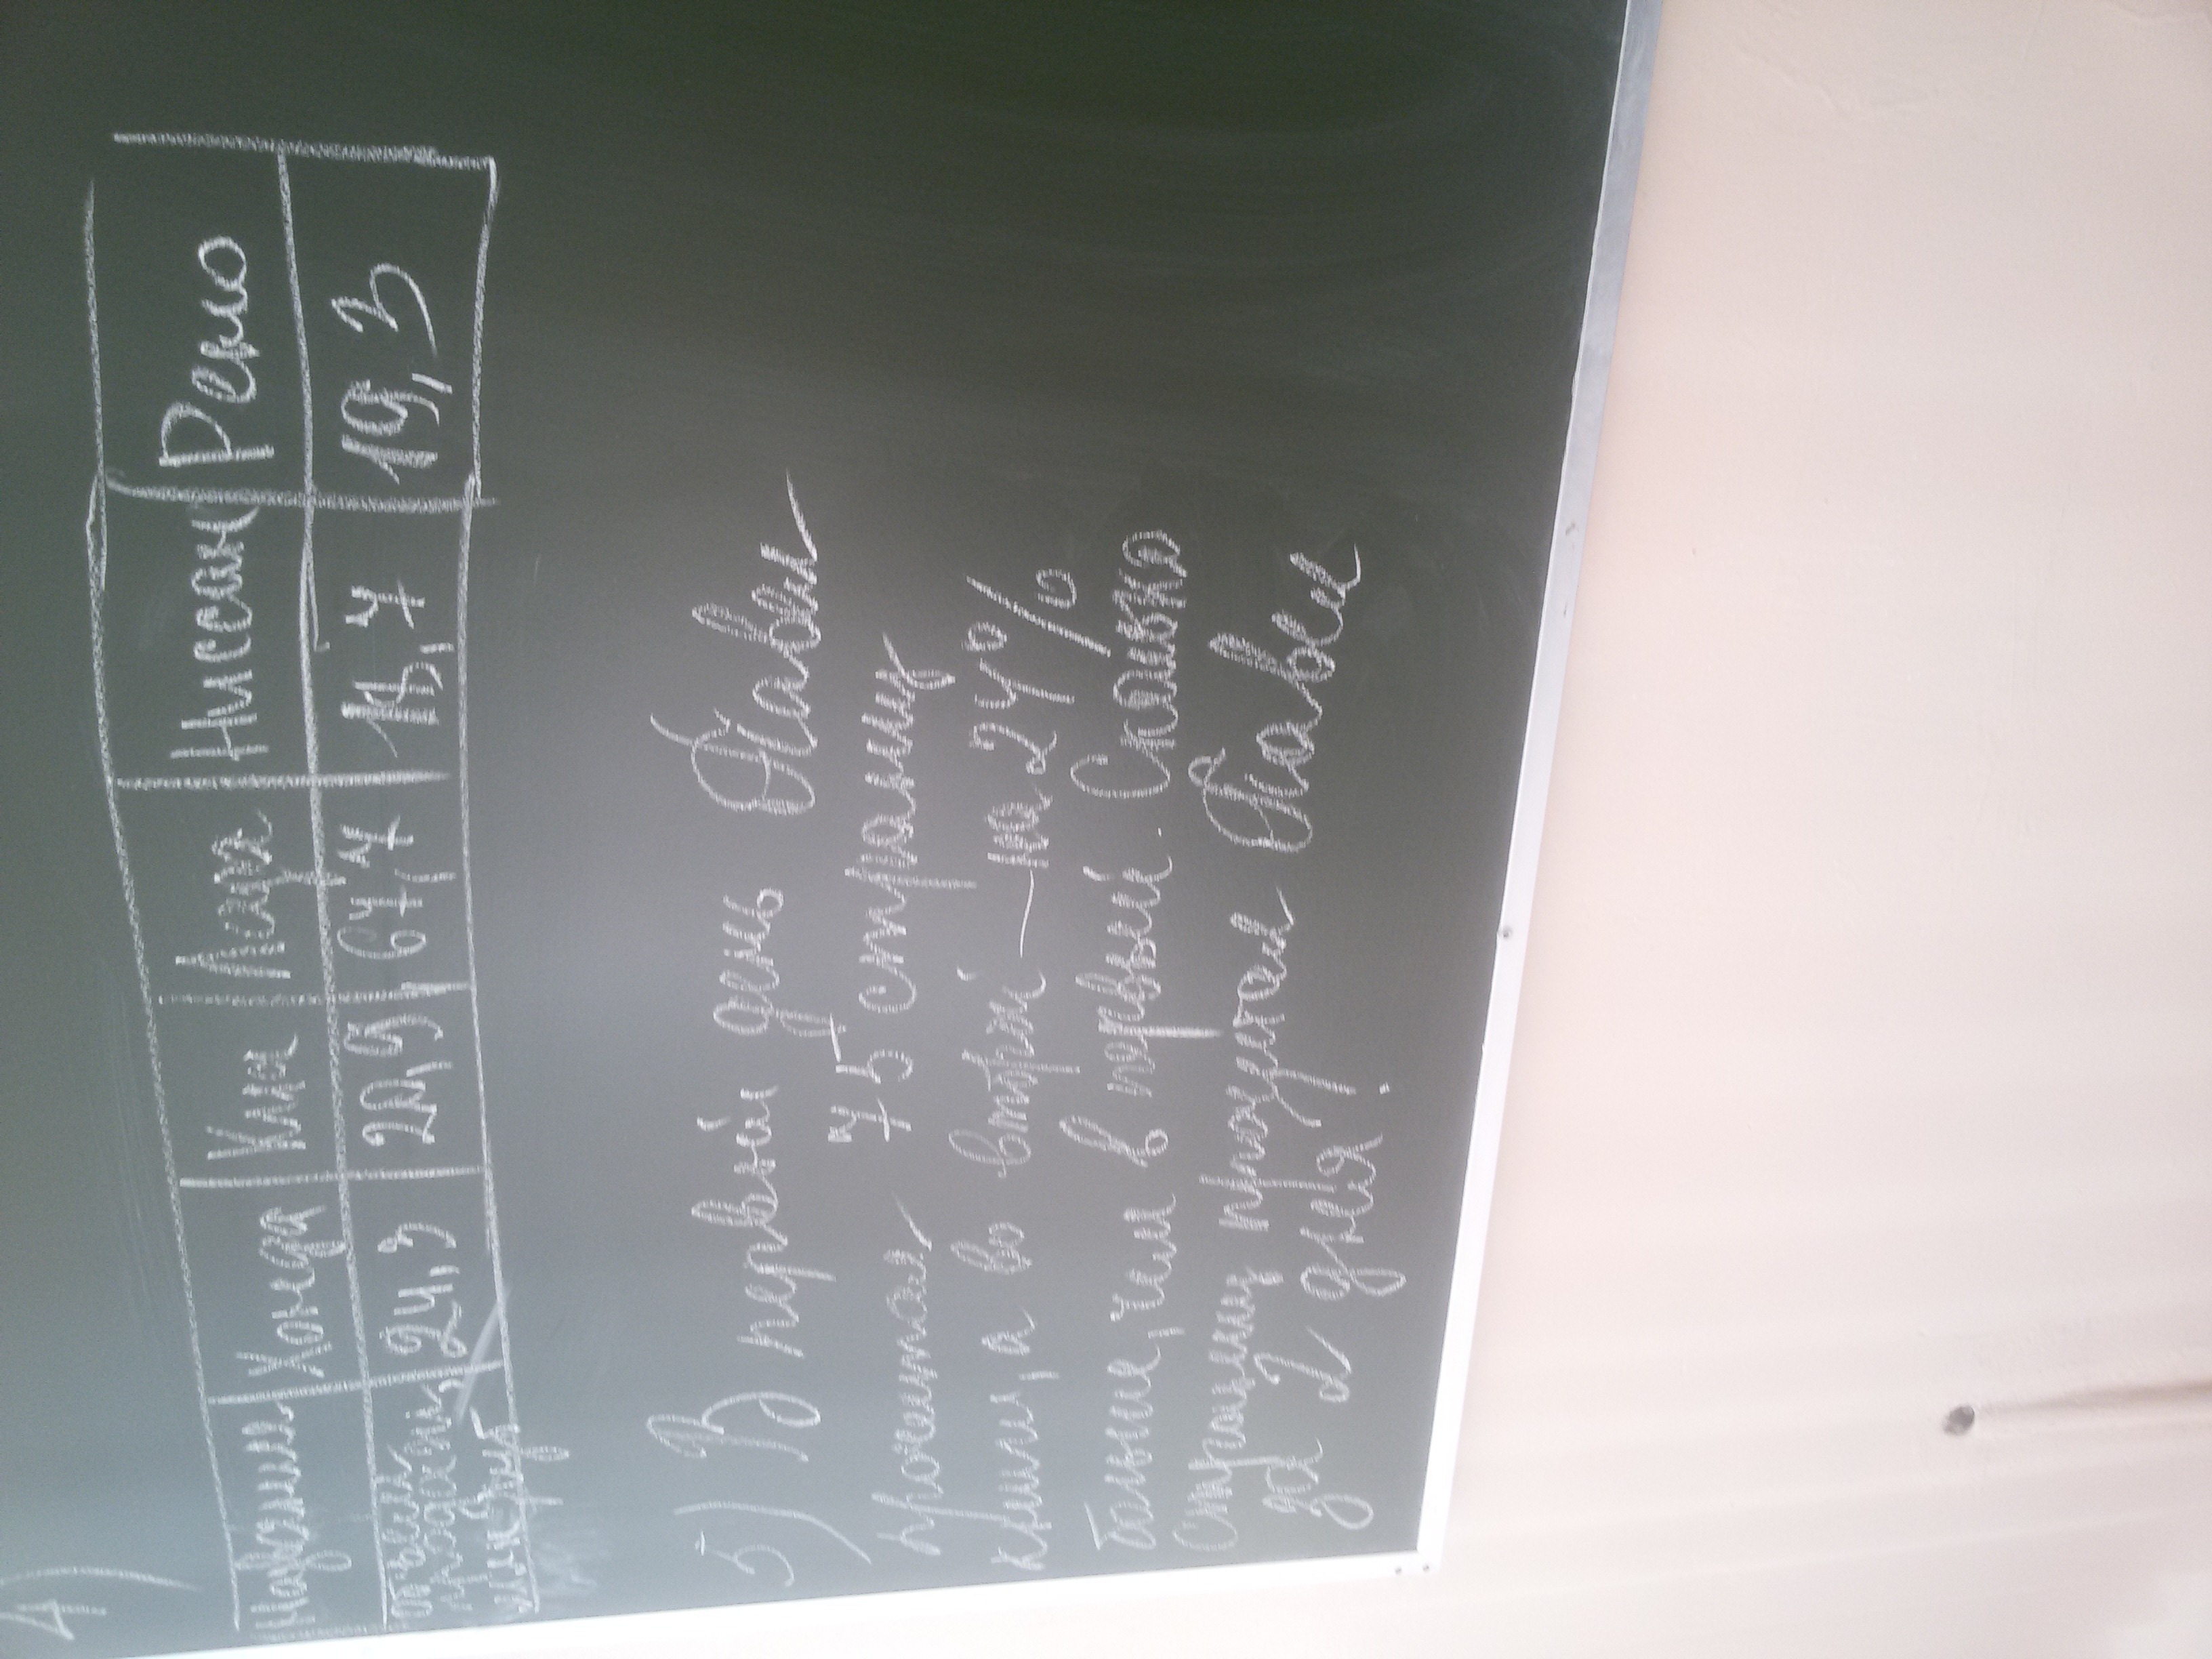 4)
Название Хонда Киа Лада Ниссан Рено
объём продажи, млн. руб 24,3 20,9 67,7 15,7 19,3
5) В первый день Павел
прочитал 75 страниц
книги, а во втрой — на 24%
больше, чем в первый. Сколько
страниц прочитал Павел
за 2 дня?